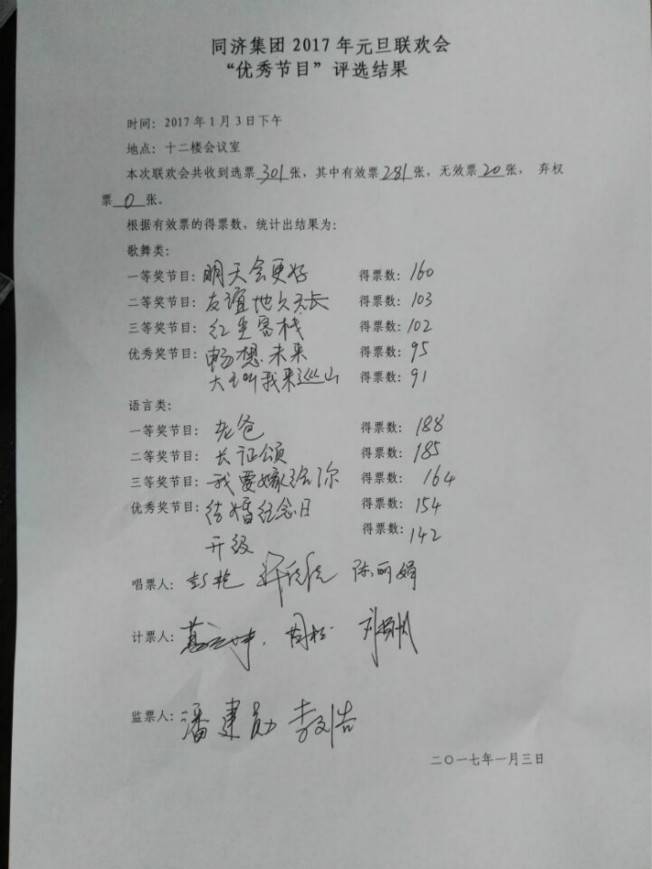 同济集团 2017 年元旦联欢会
“优秀节目”评选结果
时间：2017 年 1 月 3 日下午
地点：十二楼会议室
本次联欢会共收到选票 301 张，其中有效票 281 张，无效票 20 张， 弃权
票 0 张。
根据有效票的得票数，统计出结果为：
歌舞类：
一等奖节目：明天会更好 得票数：160
二等奖节目：友谊地久天长 得票数：103
三等奖节目：红尘客栈 得票数：102
优秀奖节目：畅想未来 得票数：95
大王叫我来巡山 得票数：91
语言类：
一等奖节目：老爸 得票数：188
二等奖节目：长征颂 得票数：185
三等奖节目：我要嫁给你 得票数：164
优秀奖节目：结婚纪念日 得票数：154
升级 得票数：142
唱票人：彭艳 陈丽娟
计票人：
监票人：潘建勋 李刘浩
二〇一七年一月三日